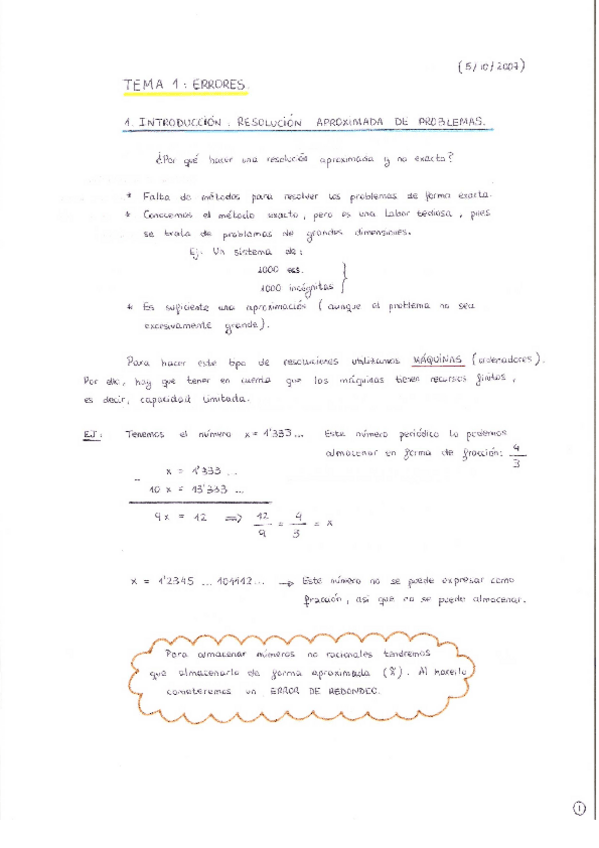 (5/10/2007)
TEMA 1: ERRORES.
1. INTRODUCCIÓN: RESOLUCIÓN APROXIMADA DE PROBLEMAS.
¿Por qué hacer una resolución aproximada y no exacta?
* Falta de métodos para resolver los problemas de forma exacta.
* Conocemos el método exacto, pero es una labor tediosa, pues
se trata de problemas de grandes dimensiones.
Ej. Un sistema de:
1000 ecs.
1000 incógnitas }
* Es suficiente una aproximación (aunque el problema no sea
excesivamente grande).
Para hacer este tipo de resoluciones utilizamos MÁQUINAS (ordenadores).
Por ello, hay que tener en cuenta que las máquinas tienen recursos finitos,
es decir, capacidad limitada.
EJ: Tenemos el número x = 1'333... Este número periódico lo podemos
almacenar en forma de fracción: 4/3
x = 1'333 ...
- 10 x = 13'333 ...
9x = 12 ⟹ 12/9 = 4/3 = x
x = 1'2345 ... 101112... → Este número no se puede expresar como
fracción, así que no se puede almacenar.
Para almacenar números no racionales tendremos
que almacenarlo de forma aproximada (x̃). Al hacerlo
cometeremos un ERROR DE REDONDEO.
1